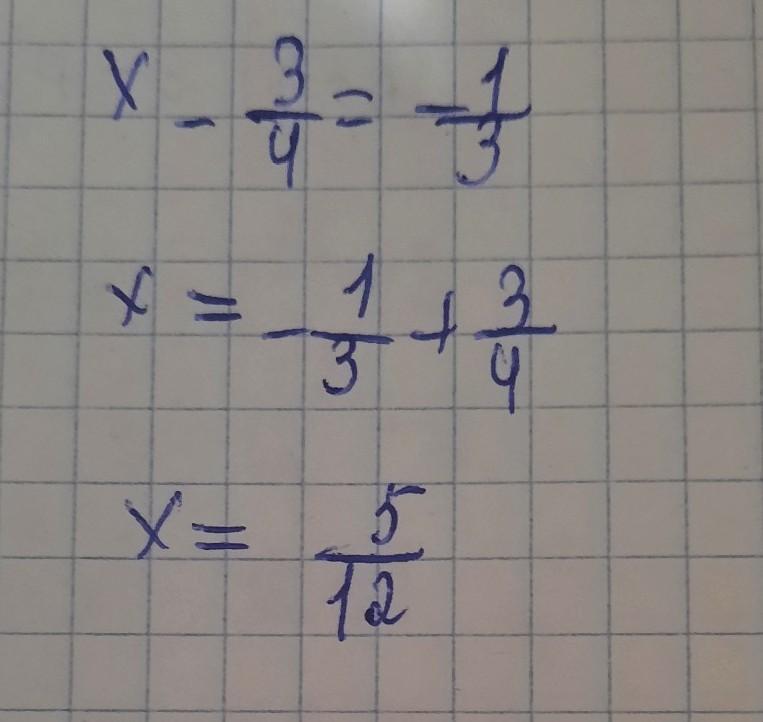 x - 3/4 = -1/3
x = -1/3 + 3/4
x = 5/12